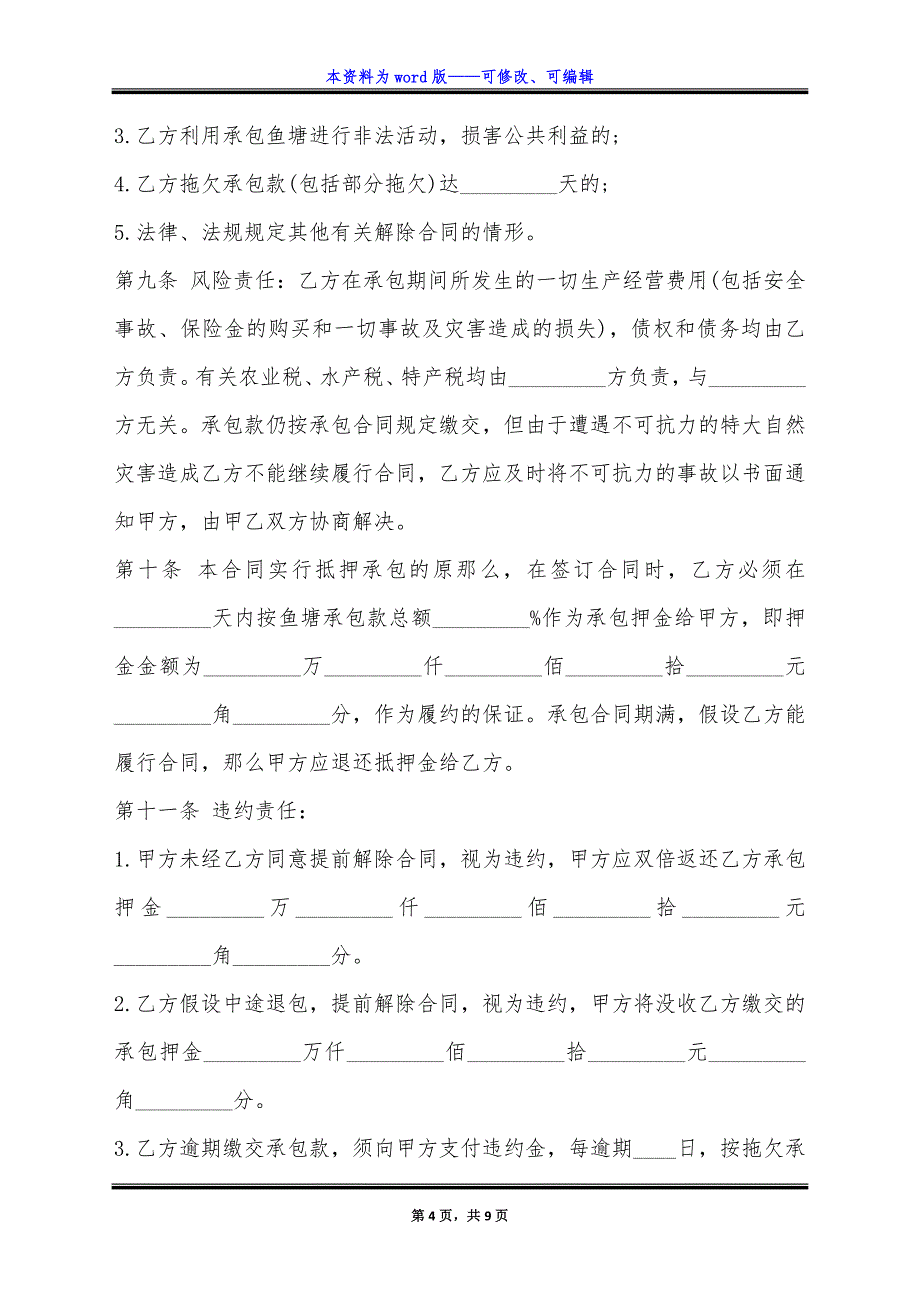 本资料为 word 版——可修改、可编辑
3.乙方利用承包鱼塘进行非法活动，损害公共利益的;
4.乙方拖欠承包款(包括部分拖欠)达_________天的;
5.法律、法规规定其他有关解除合同的情形。
第九条 风险责任：乙方在承包期间所发生的一切生产经营费用(包括安全
事故、保险金的购买和一切事故及灾害造成的损失)，债权和债务均由乙
方负责。有关农业税、水产税、特产税均由_________方负责，与_________
方无关。承包款仍按承包合同规定缴交，但由于遭遇不可抗力的特大自然
灾害造成乙方不能继续履行合同，乙方应及时将不可抗力的事故以书面通
知甲方，由甲乙双方协商解决。
第十条 本合同实行抵押承包的原那么，在签订合同时，乙方必须在
_________天内按鱼塘承包款总额_________%作为承包押金给甲方，即押
金金额为_________万_________仟_________佰_________拾_________元
_________角_________分，作为履约的保证。承包合同期满，假设乙方能
履行合同，那么甲方应退还抵押金给乙方。
第十一条 违约责任：
1.甲方未经乙方同意提前解除合同，视为违约，甲方应双倍返还乙方承包
押金_________万_________仟_________佰_________拾_________元
_________角_________分。
2.乙方假设中途退包，提前解除合同，视为违约，甲方将没收乙方缴交的
承包押金_________万仟_________佰_________拾_________元_________
角_________分。
3.乙方逾期缴交承包款，须向甲方支付违约金，每逾期____日，按拖欠承
第 4 页，共 9 页